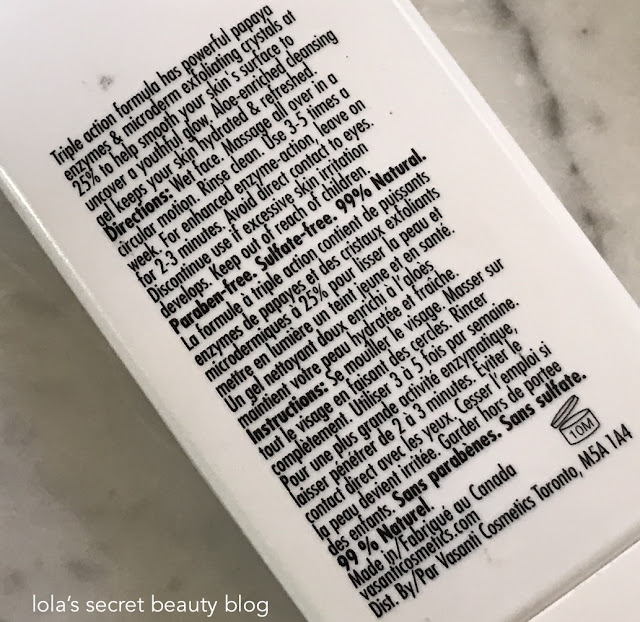 Triple action formula has powerful papaya
enzymes & microderm exfoliating crystals at
25% to help smooth your skin's surface to
uncover a youthful glow. Aloe-enriched cleansing
gel keeps your skin hydrated & refreshed.
Directions: Wet face. Massage all over in a
circular motion. Rinse clean. Use 3-5 times a
week. For enhanced enzyme-action, leave on
for 2-3 minutes. Avoid direct contact to eyes.
Discontinue use if excessive skin irritation
develops. Keep out of reach of children.
Paraben-free. Sulfate-free. 99% Natural.
La formule à triple action contient de puissants
enzymes de papayes et des cristaux exfoliants
microdermiques à 25% pour lisser la peau et
mettre en lumière un teint jeune et en santé.
Un gel nettoyant doux enrichi à l'aloès
maintient votre peau hydratée et fraîche.
Instructions: Se mouiller le visage. Masser sur
tout le visage en faisant des cercles. Rincer
complètement. Utiliser 3 à 5 fois par semaine.
Pour une plus grande activité enzymatique,
laisser pénétrer de 2 à 3 minutes. Éviter le
contact direct avec les yeux. Cesser l'emploi si
la peau devient irritée. Garder hors de portée
des enfants. Sans parabènes. Sans sulfate.
99 % Naturel.
Made in/Fabriqué au Canada
vasanticosmetics.com
Dist. By/Par Vasanti Cosmetics Toronto, M5A 1A4
10M
lola's secret beauty blog